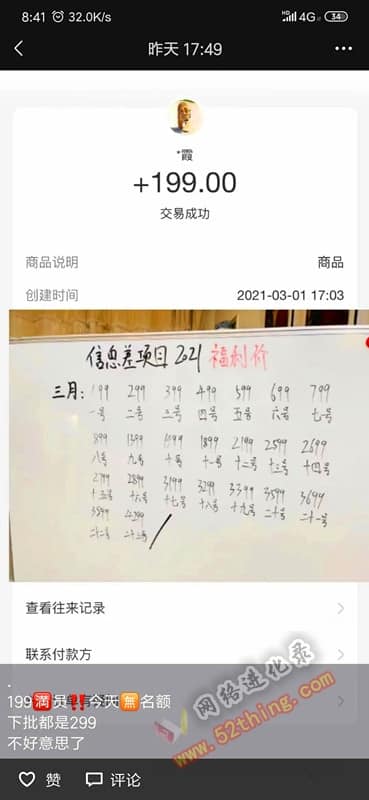 8:41 32.0K/s HD 4G 34
昨天 17:49
*霞
+199.00
交易成功
商品说明 商品
创建时间 2021-03-01 17:03
信息差项目2021 福利价
三月: 199 299 399 499 599 699 799
一号 二号 三号 四号 五号 六号 七号
899 1399 1899 2199 2599 2699
八号 九号 十号 十一号 十二号 十三号 十四号
2799 2899 3199 3299 3399 3599 3699
十五号 十六号 十七号 十八号 十九号 二十号 二十一号
3899 4299
二十二号 二十三号
查看往来记录
联系付款方
.
199🈵员‼️今天🈚名额
下批都是299
不好意思了
赞 评论
网络进化录
www.52thing.com